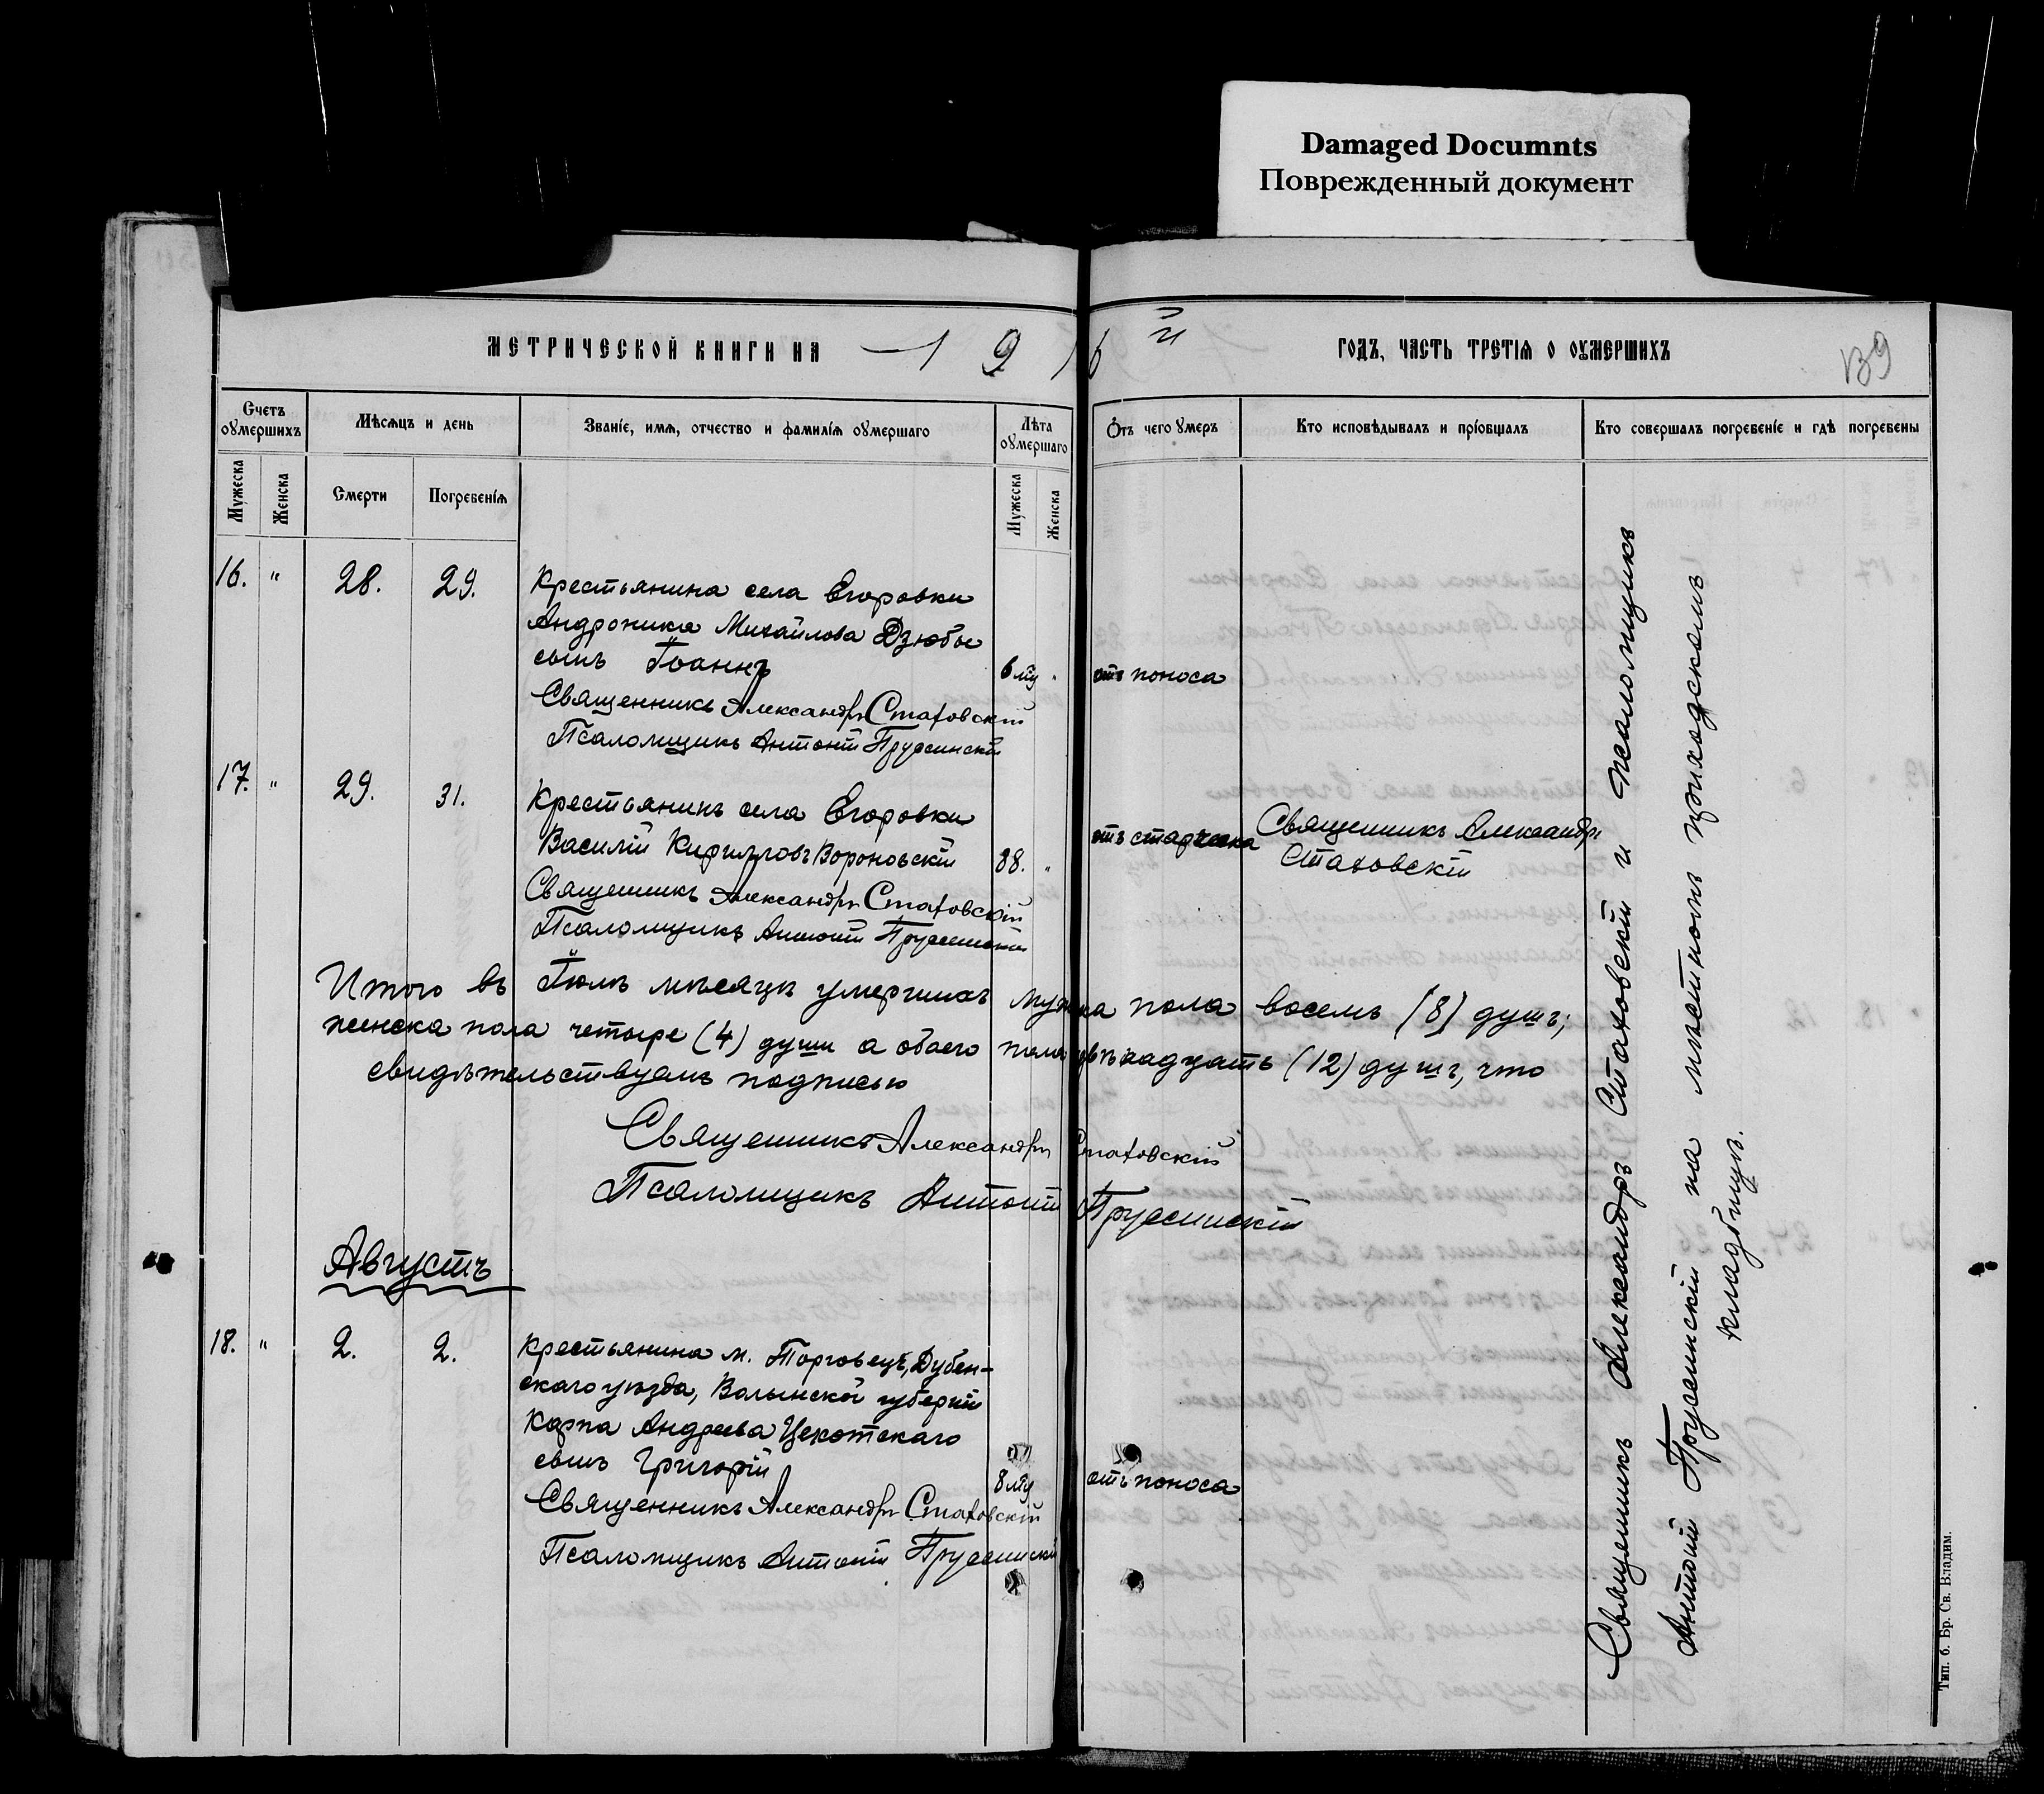 Damaged Documnts
Поврежденный документ
МЕТРИЧЕСКОЙ КНИГИ НА 1916й ГОДЪ, ЧАСТЬ ТРЕТІЯ О ОУМЕРШИХЪ
139
Счетъ оумершихъ
Мѣсяцъ и день
Званіе, имя, отчество и фамилія оумершаго
Лѣта оумершаго
Отъ чего умеръ
Кто исповѣдывалъ и пріобщалъ
Кто совершалъ погребеніе и гдѣ погребены
Мужеска
Женска
Смерти
Погребенія
Мужеска
Женска
16. " 28. 29.
Крестьянина села Егоровки
Андроника Михайлова Дзюбы
сынъ Іоаннъ
6 мц " отъ поноса
Священникъ Александръ Стаховскій
Псаломщикъ Антоній Пруссинскій
17. " 29. 31.
Крестьянинъ села Егоровки
Василій Кирилловъ Вороновскій
88. " отъ старческа
Священникъ Александръ
Стаховскій
Священникъ Александръ Стаховскій
Псаломщикъ Антоній Пруссинскій
Итого въ Іюлѣ мѣсяцѣ умершихъ мужска пола восемь (8) душъ;
женска пола четыре (4) души а обоего пола двѣнадцать (12) душъ, что
свидѣтельствуемъ подписью
Священникъ Александръ Стаховскій
Псаломщикъ Антоній Пруссинскій
Августъ
18. " 2. 2.
Крестьянина м. Торговецъ, Дубен-
скаго уѣзда, Волынской губерніи
Карпа Андреева Цекотскаго
сынъ Григорій
8 мц отъ поноса
Священникъ Александръ Стаховскій
Псаломщикъ Антоній Пруссинскій
Священникъ Александръ Стаховскій и Псаломщикъ
Антоній Пруссинскій на мѣстномъ приходскомъ
кладбищѣ.
Тип. б. Бр. Св. Владим.